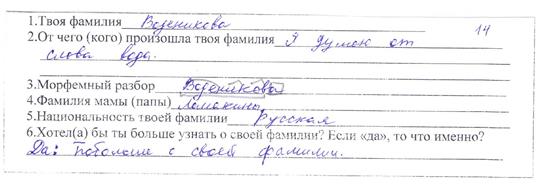 1.Твоя фамилия Воденикова 14
2.От чего (кого) произошла твоя фамилия Я думаю от
слова вода.
3.Морфемный разбор Воденикова
4.Фамилия мамы (папы) Ломакины
5.Национальность твоей фамилии Русская
6.Хотел(а) бы ты больше узнать о своей фамилии? Если «да», то что именно?
Да: Побольше о своей фамилии.